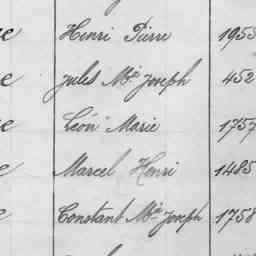 e Henri Pierre 1955
e Jules Mie Joseph 452
e Léon Marie 1757
e Marcel Henri 1485
e Constant Mie Joseph 1758